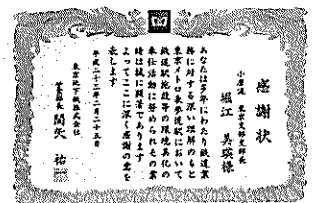 感謝状
小原流 東京支部支部長
堀江 美瑛様
あなたは多年にわたり鉄道業
務に対する深い理解のもと
東京メトロ表参道駅において
鉄道駅施設等の環境美化の
奉仕活動に努められその業
績は誠に顕著であります
よってここに深く感謝の意を
表します
平成二十三年二月二十三日
東京地下鉄株式会社
営業部長 関矢 祐